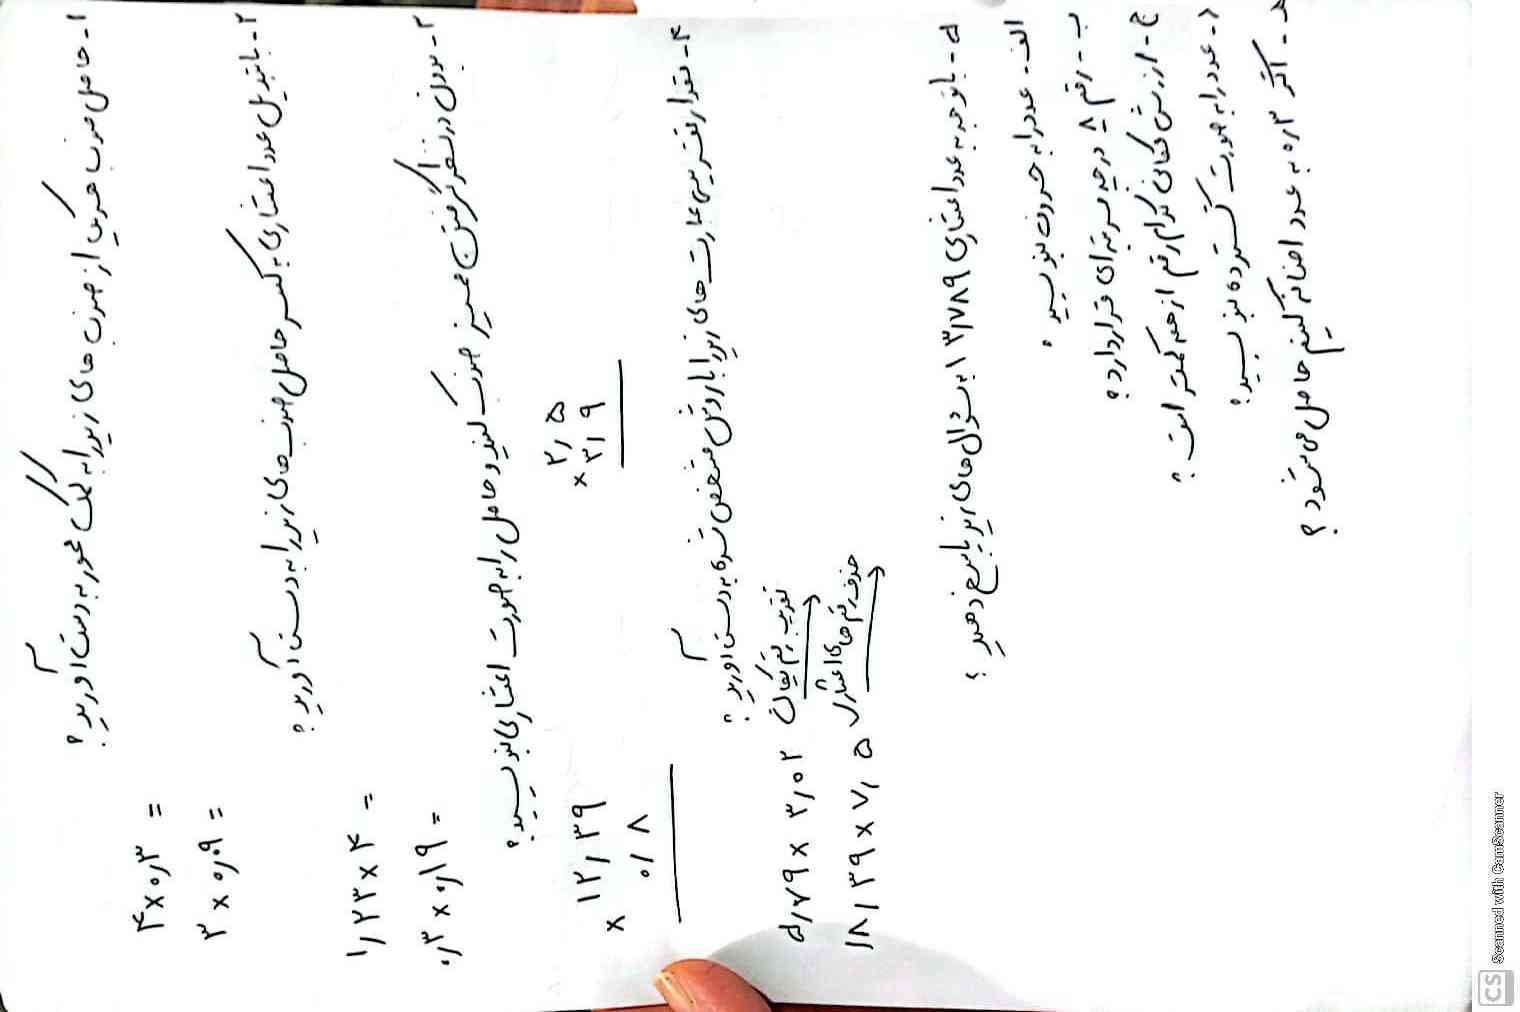 ۱- حاصل ضرب هر یک از ضرب های زیر را به کمک محور به دست آورید؟
۴×۰٫۳ =
۳ × ۰٫۰۹ =
۲- با تبدیل عدد اعشاری به کسر حاصل ضرب های زیر را به دست آورید؟
۱٫۲۳×۴ =
۰٫۳ × ۰٫۱۹ =
۳- بدون در نظر گرفتن ممیز ضرب کنید و حاصل را به صورت اعشاری بنویسید؟
۱۲٫۳۹ ۲٫۵
× ۰٫۸ × ۳٫۹
۴- مقدار تقریبی عبارت های زیر را با روش مشخص شده به دست آورید؟
۵٫۷۹ × ۳٫۰۲ تقریب رقم یکان
۱۸٫۳۹ × ۷٫۵ حذف رقم های اعشار
۵- با توجه به عدد اعشاری ۱۳٫۷۸۹ به سؤال های زیر پاسخ دهید؟
الف- عدد را به حروف بنویسید.
ب- رقم ۸ در چه مرتبه ای قرار دارد؟
ج- ارزش مکانی کدام رقم از همه کمتر است؟
د- عدد را به صورت گسترده بنویسید؟
هـ- اگر ۰٫۳ به عدد اضافه کنیم حاصل می شود؟
CS Scanned with CamScanner